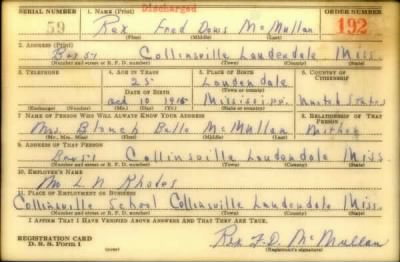 Discharged
SERIAL NUMBER 1. NAME (Print) ORDER NUMBER
59 Rex Fred Dows McMullan 192
(First) (Middle) (Last)
2. ADDRESS (Print)
Box 51 Collinsville Lauderdale Miss.
(Number and street or R. F. D. number) (Town) (County) (State)
3. TELEPHONE 4. AGE IN YEARS 5. PLACE OF BIRTH 6. COUNTRY OF CITIZENSHIP
25 Lauderdale
DATE OF BIRTH (Town or county)
Oct 10 1915 Mississippi United States
(Exchange) (Number) (Mo.) (Day) (Yr.) (State or country)
7. NAME OF PERSON WHO WILL ALWAYS KNOW YOUR ADDRESS 8. RELATIONSHIP OF THAT PERSON
Mrs. Blanch Belle McMullan Mother
(Mr., Mrs., Miss) (First) (Middle) (Last)
9. ADDRESS OF THAT PERSON
Box 51 Collinsville Lauderdale Miss.
(Number and street or R. F. D. number) (Town) (County) (State)
10. EMPLOYER'S NAME
Mr L. D. Rhodes
11. PLACE OF EMPLOYMENT OR BUSINESS
Collinsville School Collinsville Lauderdale Miss.
(Number and street or R. F. D. number) (Town) (County) (State)
I AFFIRM THAT I HAVE VERIFIED ABOVE ANSWERS AND THAT THEY ARE TRUE.
REGISTRATION CARD
D. S. S. Form 1 (over) Rex F. D. McMullan
(Registrant's signature)